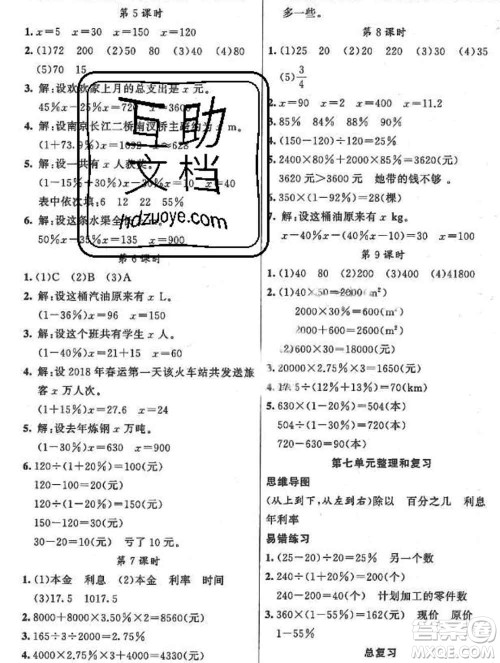 第5课时
1. x=5　x=30　x=30
2. (1)72　200　(2)50　(3)50　(4)80
(5)70　15
3. 解:设欢欢家上月的总支出是 x 元。
45%x-25%x=720　x=3600
4. 解:设南京长江二桥南汊桥主跨为 x m。
(1+73.9%)x=1092　x=628
5. 解:设一共有 x 人
表中依次填:6　12　22　55%
6. 解:设这条水渠全长
50%x-35%x=135　x=900
第6课时
1. (1)C　(2)B　(3)A
2. 解:设这桶汽油原来有 x L。
(1-36%)x=16　x=25
3. 解:设这个班共有学生 x 人。
(1-30%)x=21+15　x=60
4. 解:设 2018 年春运第一天该火车站共发送旅
客 x 万人次。
(1+15%)x=27.6　x=24
5. 解:设去年炼钢 x 万吨。
(1-30%)x=630　x=900
6. 120÷(1+20%)=100(元)
120-100=20(元)
120÷(1-20%)=150(元)
150-120=30(元)
30-20=10(元)　亏了10元。
第7课时
1. (1)本金　利息　(2)本金　利率　时间
(3)17.5　1017.5
2. 8000+8000×3.50%×2=8560(元)
3. 165÷3÷2.75%=2000(元)
4. 5000+5000×2.75%×3=5412.5(元)
多一些。
第8课时
1. (1)25　20　(2)20　220　(3)25　(4)35
(5)3/4
2. x=90　x=2　x=400　x=11.2
3. 85%　84%　88%　90%
4. (150-120)÷120=25%
5. 2400×80%+2000×85%=3620(元)
3620元>3600元　她带的钱不够。
6. 350×(1-92%)=28(棵)
7. 解:设这桶油原来有 x kg。
x-40%x-50%x=20　x=200
第9课时
1. (1)40　80　(2)200　(3)400　(4)41800
2. (1)40×50=2000(m²)
2000×30%=600(m²)
(2)600×30=18000(元)
3. 20000×2.75%×3=1650(元)
4. 17.5÷(1-30%)=25(元)
5. 630×(1-20%)=504(本)
720×(1-30%)=504(本)
720-630=90(本)
第七单元整理和复习
思维导图
(从上到下,从左到右)除以　百分之几　利息
年利率
易错练习
1. (25-20)÷20=25%　另一个数
2. 240÷(1-20%)=200(个)
240÷(1+20%)=200(个)　计划加工的零件数
3. 360×(1-55%)=162(元)　现价　原价
1-55%
总复习
互助
文档
hdzuoye.com